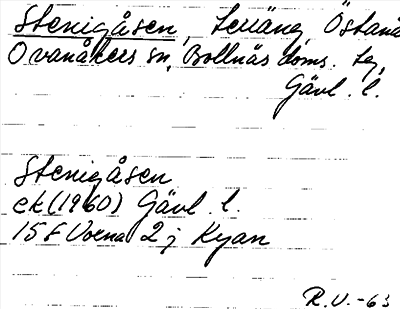 Stenigåsen, Terräng, Östanå
Ovanåkers sn, Bollnäs doms. tg,
Gävl. l.
Stenigåsen
ek (1960) Gävl. l.
15F Voxna 2 j Kyan
R.V.-63